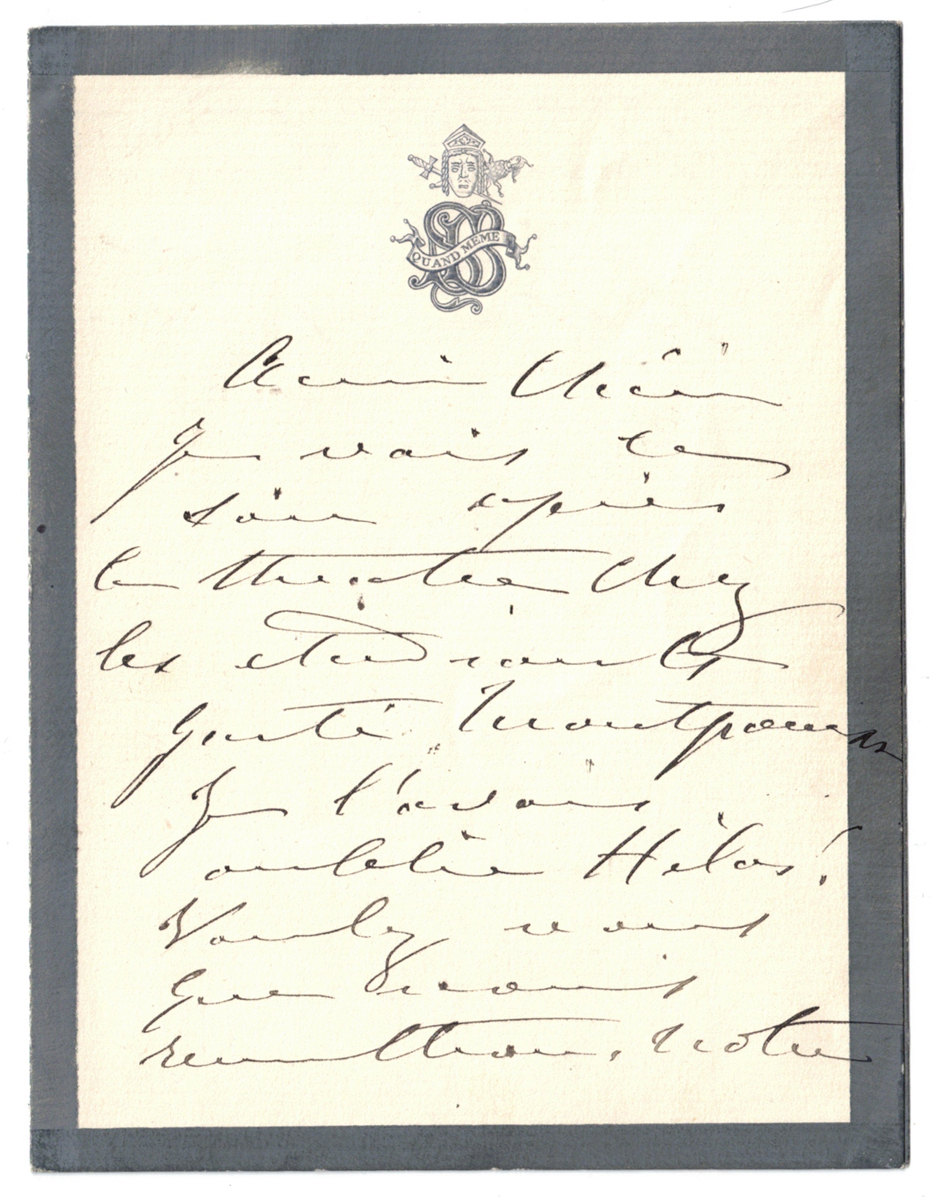 QUAND MEME
Ami Chéri
Je vais ce
soir après
le theatre chez
les etudiants
gaité Montparnasse
Je l'avais
oublié Hélas!
Voulez vous
que nous
remettions Notre